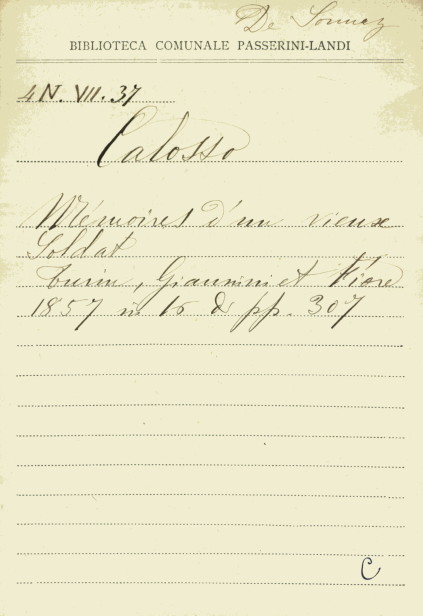 De Sonnaz
BIBLIOTECA COMUNALE PASSERINI-LANDI
4N. VII. 37
Calosso
Mémoires d'un vieux
Soldat
Turin, Giannini et Fiore
1857 in 16 d pp. 307
C